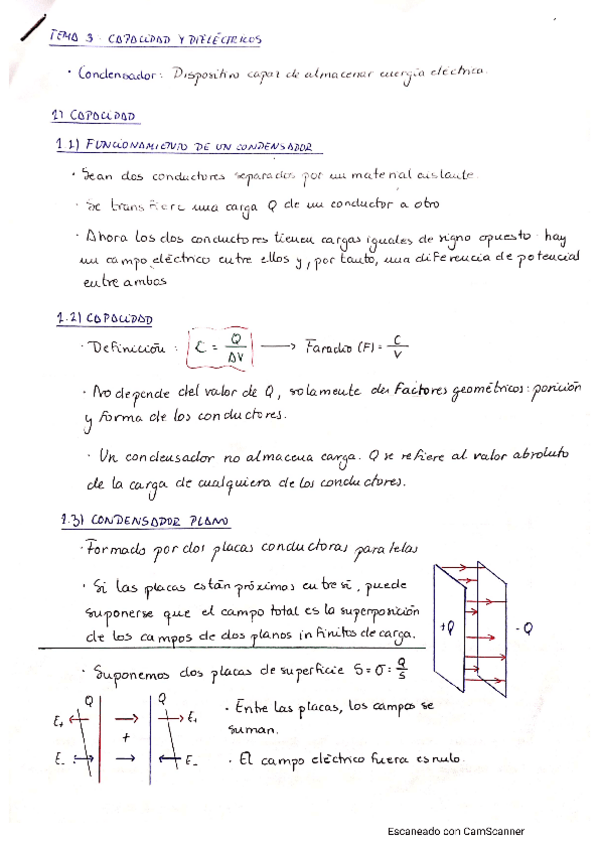 TEMA 3 - CAPACIDAD Y DIELÉCTRICOS
· Condensador: Dispositivo capaz de almacenar energía eléctrica.
1) CAPACIDAD
1.1) FUNCIONAMIENTO DE UN CONDENSADOR
· Sean dos conductores separados por un material aislante.
· Se transfiere una carga Q de un conductor a otro
· Ahora los dos conductores tienen cargas iguales de signo opuesto hay
un campo eléctrico entre ellos y, por tanto, una diferencia de potencial
entre ambos
1.2) CAPACIDAD
· Definición: C = Q/ΔV → Faradio (F) = C/V
· No depende del valor de Q, solamente de factores geométricos: posición
y forma de los conductores.
· Un condensador no almacena carga. Q se refiere al valor absoluto
de la carga de cualquiera de los conductores.
1.3) CONDENSADOR PLANO
· Formado por dos placas conductoras paralelas
· Si las placas están próximas entre sí, puede
suponerse que el campo total es la superposición
de los campos de dos planos infinitos de carga.
+Q - Q
· Suponemos dos placas de superficie S = σ = Q/S
Q Q
E+ E+
+
E- E-
· Entre las placas, los campos se
suman.
· El campo eléctrico fuera es nulo.
Escaneado con CamScanner